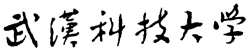 武漢科技大学